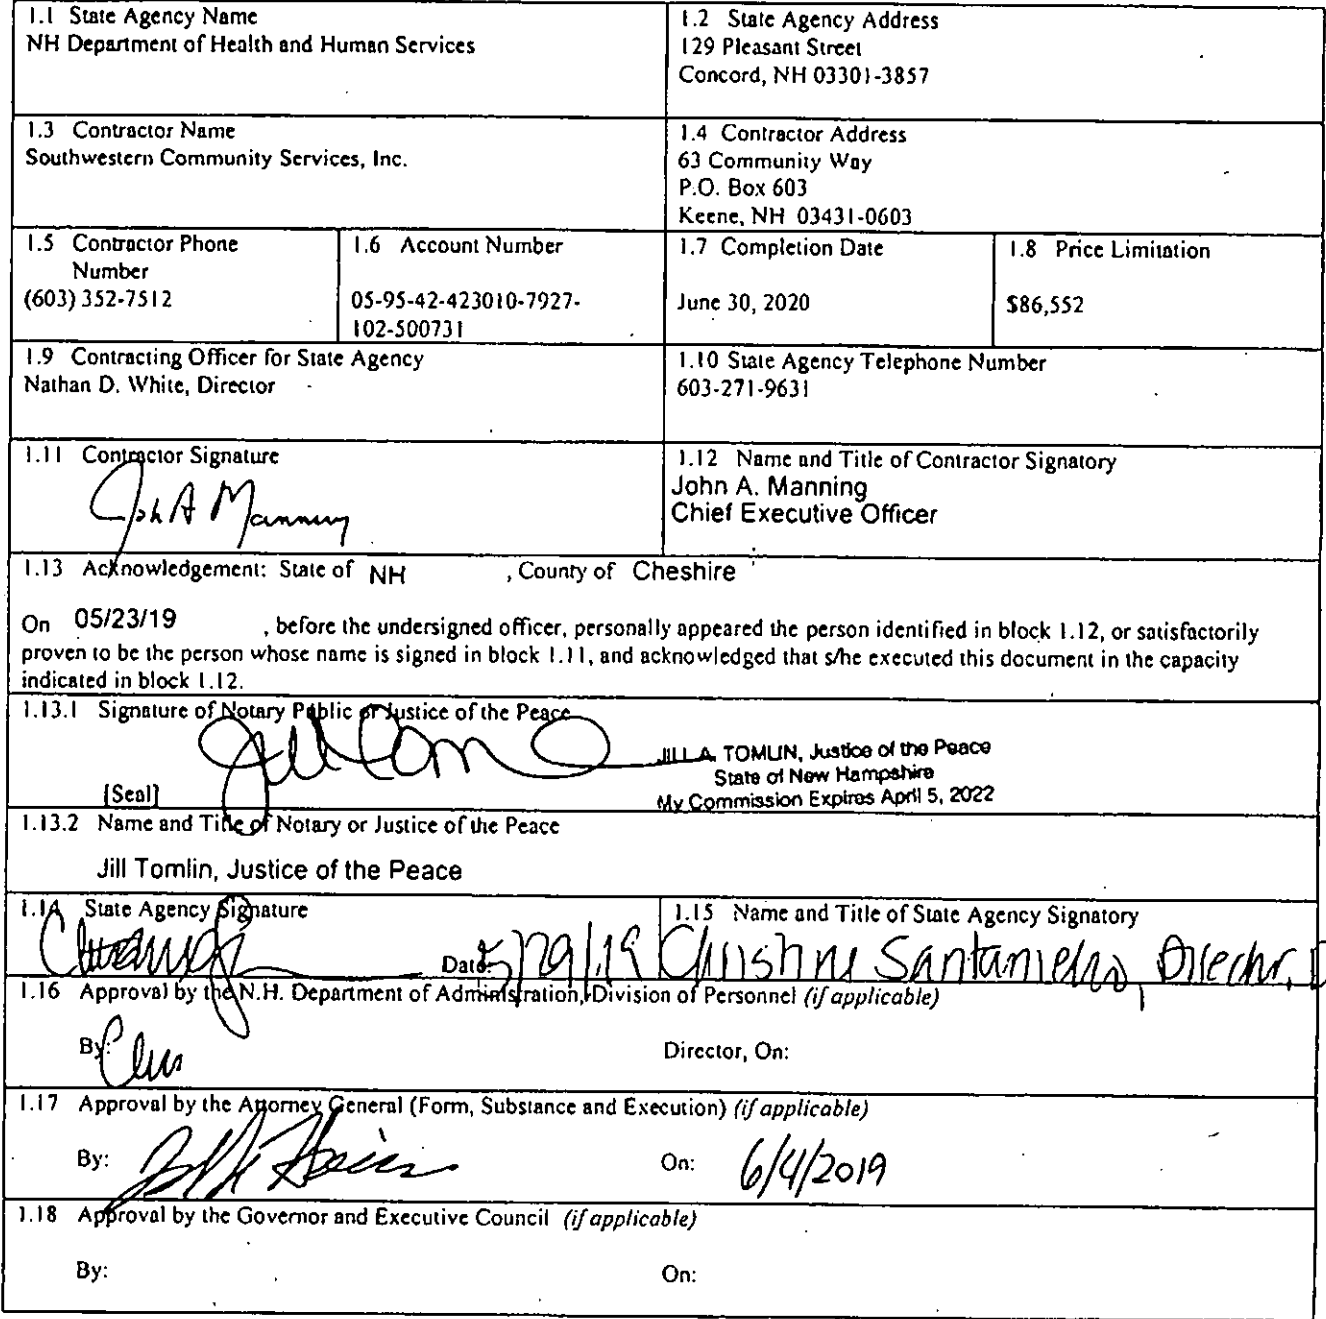 1.1 State Agency Name
NH Department of Health and Human Services
1.2 State Agency Address
129 Pleasant Street
Concord, NH 03301-3857
1.3 Contractor Name
Southwestern Community Services, Inc.
1.4 Contractor Address
63 Community Way
P.O. Box 603
Keene, NH 03431-0603
1.5 Contractor Phone
Number
(603) 352-7512
1.6 Account Number
05-95-42-423010-7927-
102-500731
1.7 Completion Date
June 30, 2020
1.8 Price Limitation
$86,552
1.9 Contracting Officer for State Agency
Nathan D. White, Director
1.10 State Agency Telephone Number
603-271-9631
1.11 Contractor Signature
John A Manning
1.12 Name and Title of Contractor Signatory
John A. Manning
Chief Executive Officer
1.13 Acknowledgement: State of NH , County of Cheshire
On 05/23/19 , before the undersigned officer, personally appeared the person identified in block 1.12, or satisfactorily
proven to be the person whose name is signed in block 1.11, and acknowledged that s/he executed this document in the capacity
indicated in block 1.12.
1.13.1 Signature of Notary Public or Justice of the Peace
JILL A. TOMLIN, Justice of the Peace
State of New Hampshire
My Commission Expires April 5, 2022
[Seal]
1.13.2 Name and Title of Notary or Justice of the Peace
Jill Tomlin, Justice of the Peace
1.14 State Agency Signature
Date: 5/29/19
1.15 Name and Title of State Agency Signatory
Christine Santaniello, Director,
1.16 Approval by the N.H. Department of Administration, Division of Personnel (if applicable)
By: Director, On:
1.17 Approval by the Attorney General (Form, Substance and Execution) (if applicable)
By: On: 6/4/2019
1.18 Approval by the Governor and Executive Council (if applicable)
By: On: